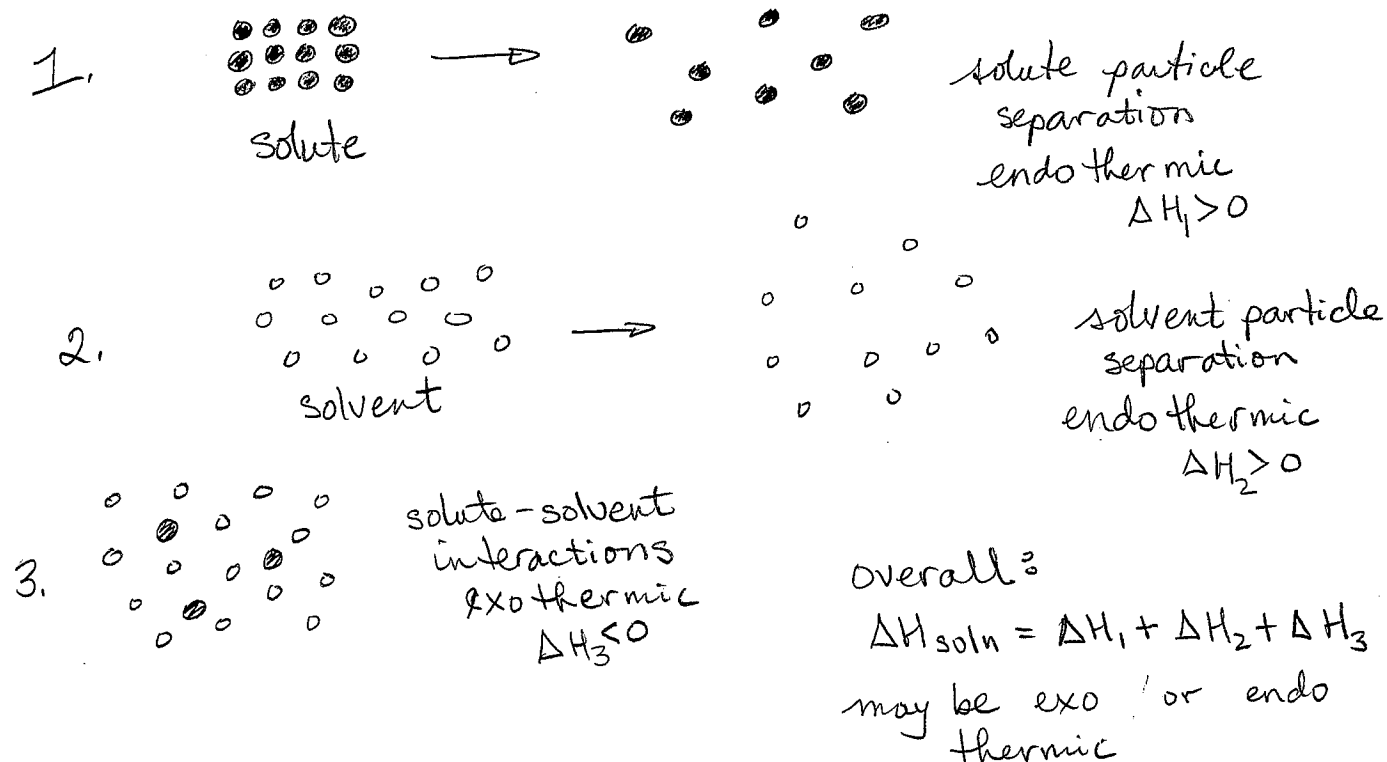 1.
solute
solute particle
separation
endothermic
ΔH₁>0
2.
solvent
solvent particle
separation
endothermic
ΔH₂>0
3.
solute-solvent
interactions
exothermic
ΔH₃<0
overall:
ΔH soln = ΔH₁ + ΔH₂ + ΔH₃
may be exo or endo
thermic